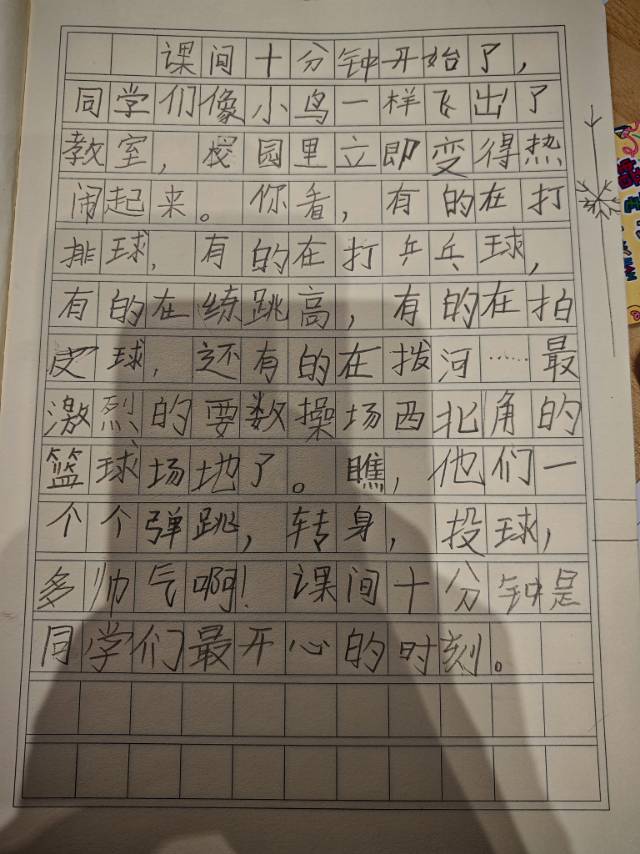 课间十分钟开始了，
同学们像小鸟一样飞出了
教室，校园里立即变得热
闹起来。你看，有的在打
排球，有的在打乒乓球，
有的在练跳高，有的在拍
皮球，还有的在拨河……最
激烈的要数操场西北角的
篮球场地了。瞧，他们一
个个弹跳，转身，投球，
多帅气啊！课间十分钟是
同学们最开心的时刻。